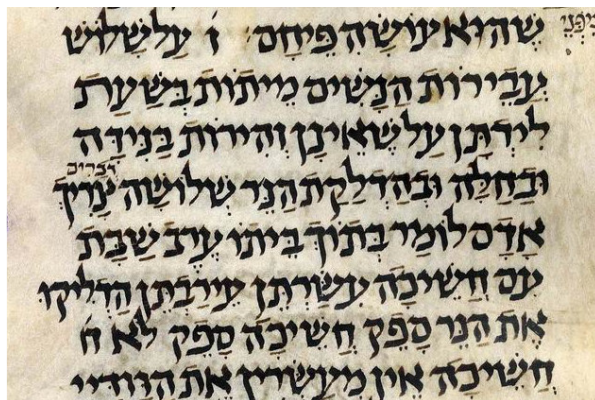 מפני שהוא עושה פיחם ו על שלוש
עבירות הנשים מיתות בשעת
לידתן על שאינן זהירות בנידה
דברים
ובחלה ובהדלקת הנר שלושה צריך
אדם לומר בתוך ביתו ערב שבת
עם חשיכה עשרתן עירבתן הדליקו
את הנר ספק חשיכה ספק לא ח
חשיכה אין מעשרין את הוודיי